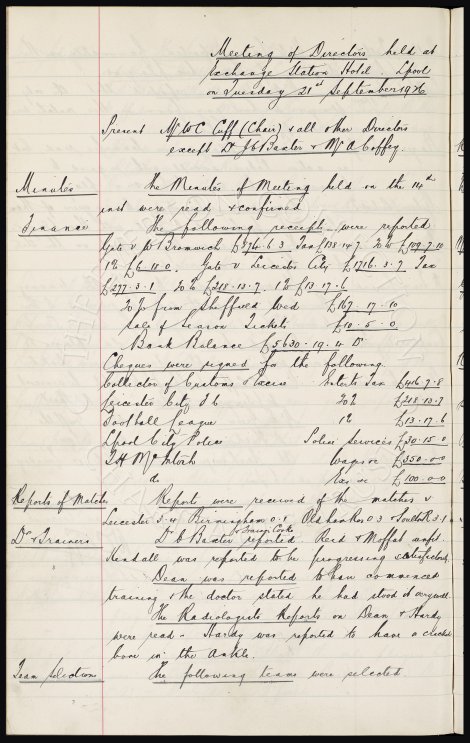 Meeting of Directors held at
Exchange Station Hotel Lpool
on Tuesday 21st September 1926
Present Mr W C Cuff (Chair) & all other Directors
except Dr J C Baxter & Mr A Coffey.
Minutes the Minutes of Meeting held on the 14th
inst were read & confirmed
Finance The following receipts were reported
Gate v W Bromwich £974.6.3 Tax £138.14.7 20% £109.7.10
1% £6.18.0. Gate v Leicester City £1716.3.7 Tax
£277.3.1 20% £218.13.7 1% £13.17.6
20% from Sheffield Wed £167.17.10
Sale of Season Tickets £10.5.0
Bank Balance £5630.19.4 Dr
Cheques were signed for the following.
Collector of Customs & Excise Enterts Tax £416.7.8
Leicester City F C 20% £218.13.7
Football League 1% £13.17.6
Lpool City Police Police Services £30.15.0
T H McIntosh Wages a/c £350.0.0
do Exs a/c £100.0.0
Reports of Matches Reports were received of the matches v
Leicester 3.4 Birmingham 0.1, Oldham Res 0.3 & South R 3.1
Drs & Trainers Dr C Baxter & Trainer Cooke reported. Reid & Moffat unfit.
Kendall was reported to be progressing satisfactorily
Dean was reported to have commenced
training & the doctor stated he had stood it very well.
The Radiologists Reports on Dean & Hardy
were read - Hardy was reported to have a cracked
bone in the Ankle.
Team Selections the following teams were selected.